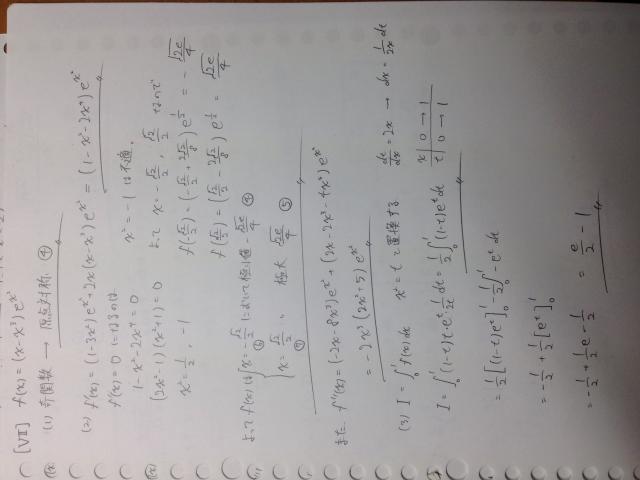 [VII] f(x) = (x-x³)e^{x²}
(1) 奇関数 → 原点対称 ④
(2) f'(x) = (1-3x²)e^{x²} + 2x(x-x³)e^{x²} = (1-x²-2x⁴)e^{x²}
f'(x) = 0 になるのは
1-x²-2x⁴ = 0
(2x²-1)(x²+1) = 0
x² = 1/2, -1
x² = -1 は不適.
よって x = -√2/2, √2/2 なので
f(-√2/2) = (-√2/2 + 2√2/8)e^{1/2} = -√(2e)/4
f(√2/2) = (√2/2 - 2√2/8)e^{1/2} = √(2e)/4
よって f(x) は { x = -√2/2 において 極小値 -√(2e)/4 ④
x = √2/2 〃 極大 √(2e)/4 ⑤
また. f''(x) = (-2x-8x³)e^{x²} + (2x-2x³-4x⁵)e^{x²}
= -2x³(2x²+5)e^{x²}
(3) I = ∫₀¹ f(x)dx x² = t と置換する dt/dx = 2x → dx = 1/2x dt
x | 0 → 1
t | 0 → 1
I = ∫₀¹ (1-t)t·e^t·1/2t dt = 1/2∫₀¹ (1-t)e^t dt
= 1/2[(1-t)e^t]₀¹ - 1/2∫₀¹ -e^t dt
= -1/2 + 1/2[e^t]₀¹
= -1/2 + 1/2e - 1/2 = e/2 - 1